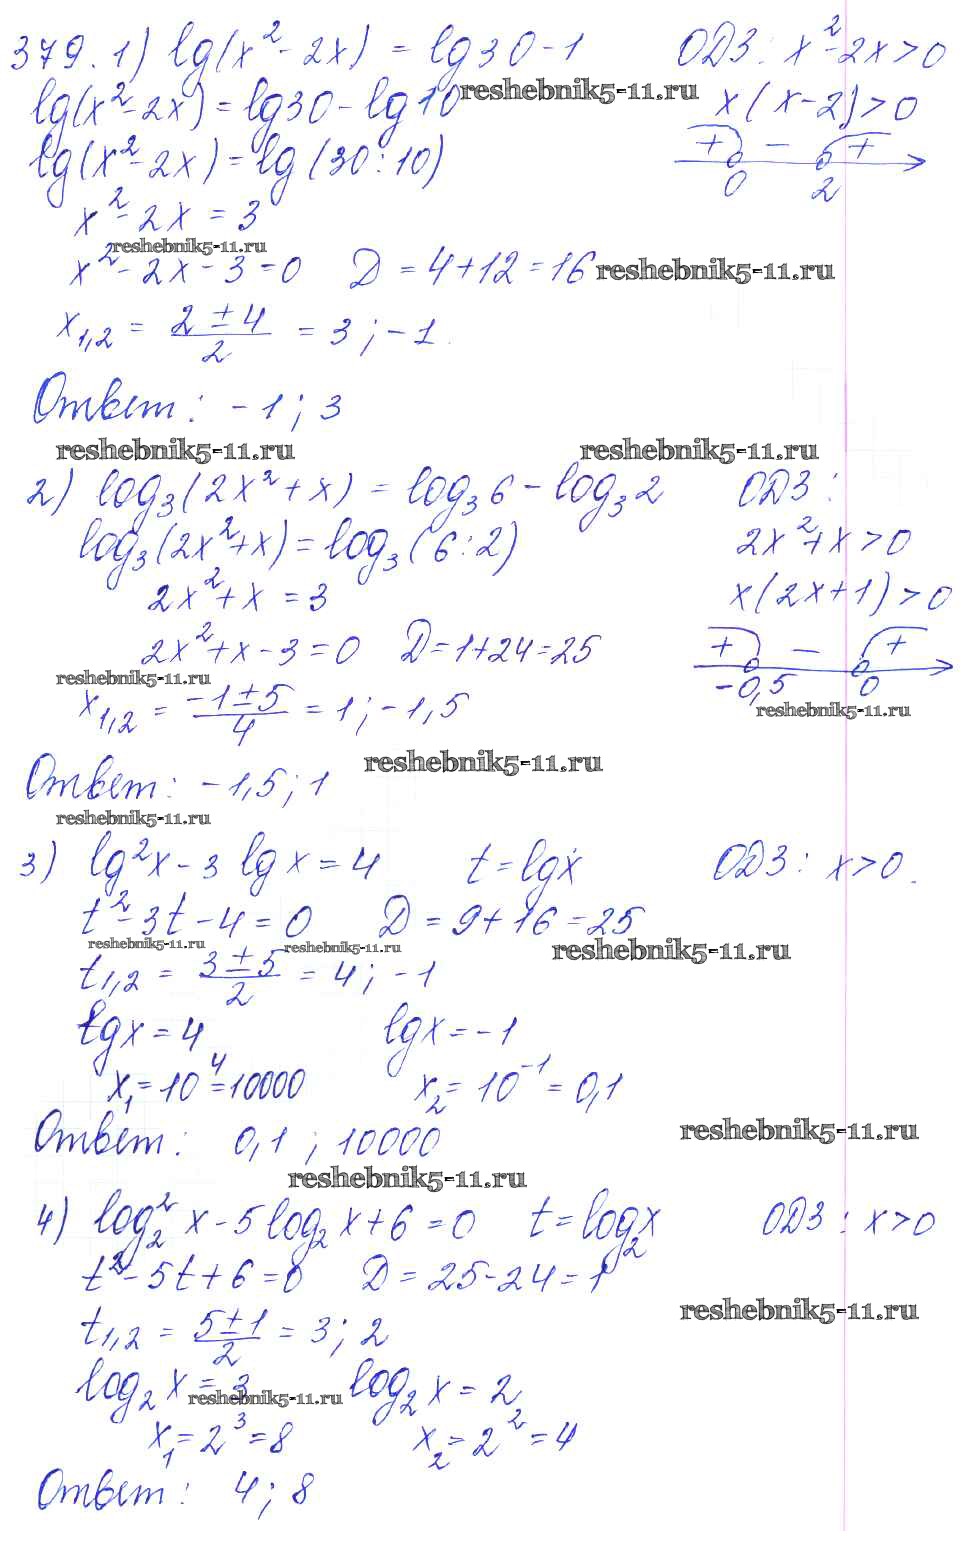 379. 1) lg(x² - 2x) = lg30 - 1 ОДЗ: x² - 2x > 0
lg(x² - 2x) = lg30 - lg10 reshebnik5-11.ru x(x - 2) > 0
lg(x² - 2x) = lg(30 : 10) + - +
0 2
x² - 2x = 3
reshebnik5-11.ru
x² - 2x - 3 = 0 D = 4 + 12 = 16 reshebnik5-11.ru
x₁,₂ = (2 ± 4)/2 = 3; -1.
Ответ: -1; 3
reshebnik5-11.ru reshebnik5-11.ru
2) log₃(2x² + x) = log₃6 - log₃2 ОДЗ:
log₃(2x² + x) = log₃(6 : 2) 2x² + x > 0
2x² + x = 3 x(2x + 1) > 0
2x² + x - 3 = 0 D = 1 + 24 = 25 + - +
reshebnik5-11.ru -0,5 0
x₁,₂ = (-1 ± 5)/4 = 1; -1,5 reshebnik5-11.ru
reshebnik5-11.ru
Ответ: -1,5; 1
reshebnik5-11.ru
3) lg²x - 3 lg x = 4 t = lgx ОДЗ: x > 0.
t² - 3t - 4 = 0 D = 9 + 16 = 25
reshebnik5-11.ru reshebnik5-11.ru reshebnik5-11.ru
t₁,₂ = (3 ± 5)/2 = 4; -1
lgx = 4 lgx = -1
x₁ = 10⁴ = 10000 x₂ = 10⁻¹ = 0,1
Ответ: 0,1; 10000 reshebnik5-11.ru
reshebnik5-11.ru
4) log₂²x - 5log₂x + 6 = 0 t = log₂x ОДЗ: x > 0
t² - 5t + 6 = 0 D = 25 - 24 = 1
reshebnik5-11.ru
t₁,₂ = (5 ± 1)/2 = 3; 2
log₂x = 3 log₂x = 2
reshebnik5-11.ru
x₁ = 2³ = 8 x₂ = 2² = 4
Ответ: 4; 8